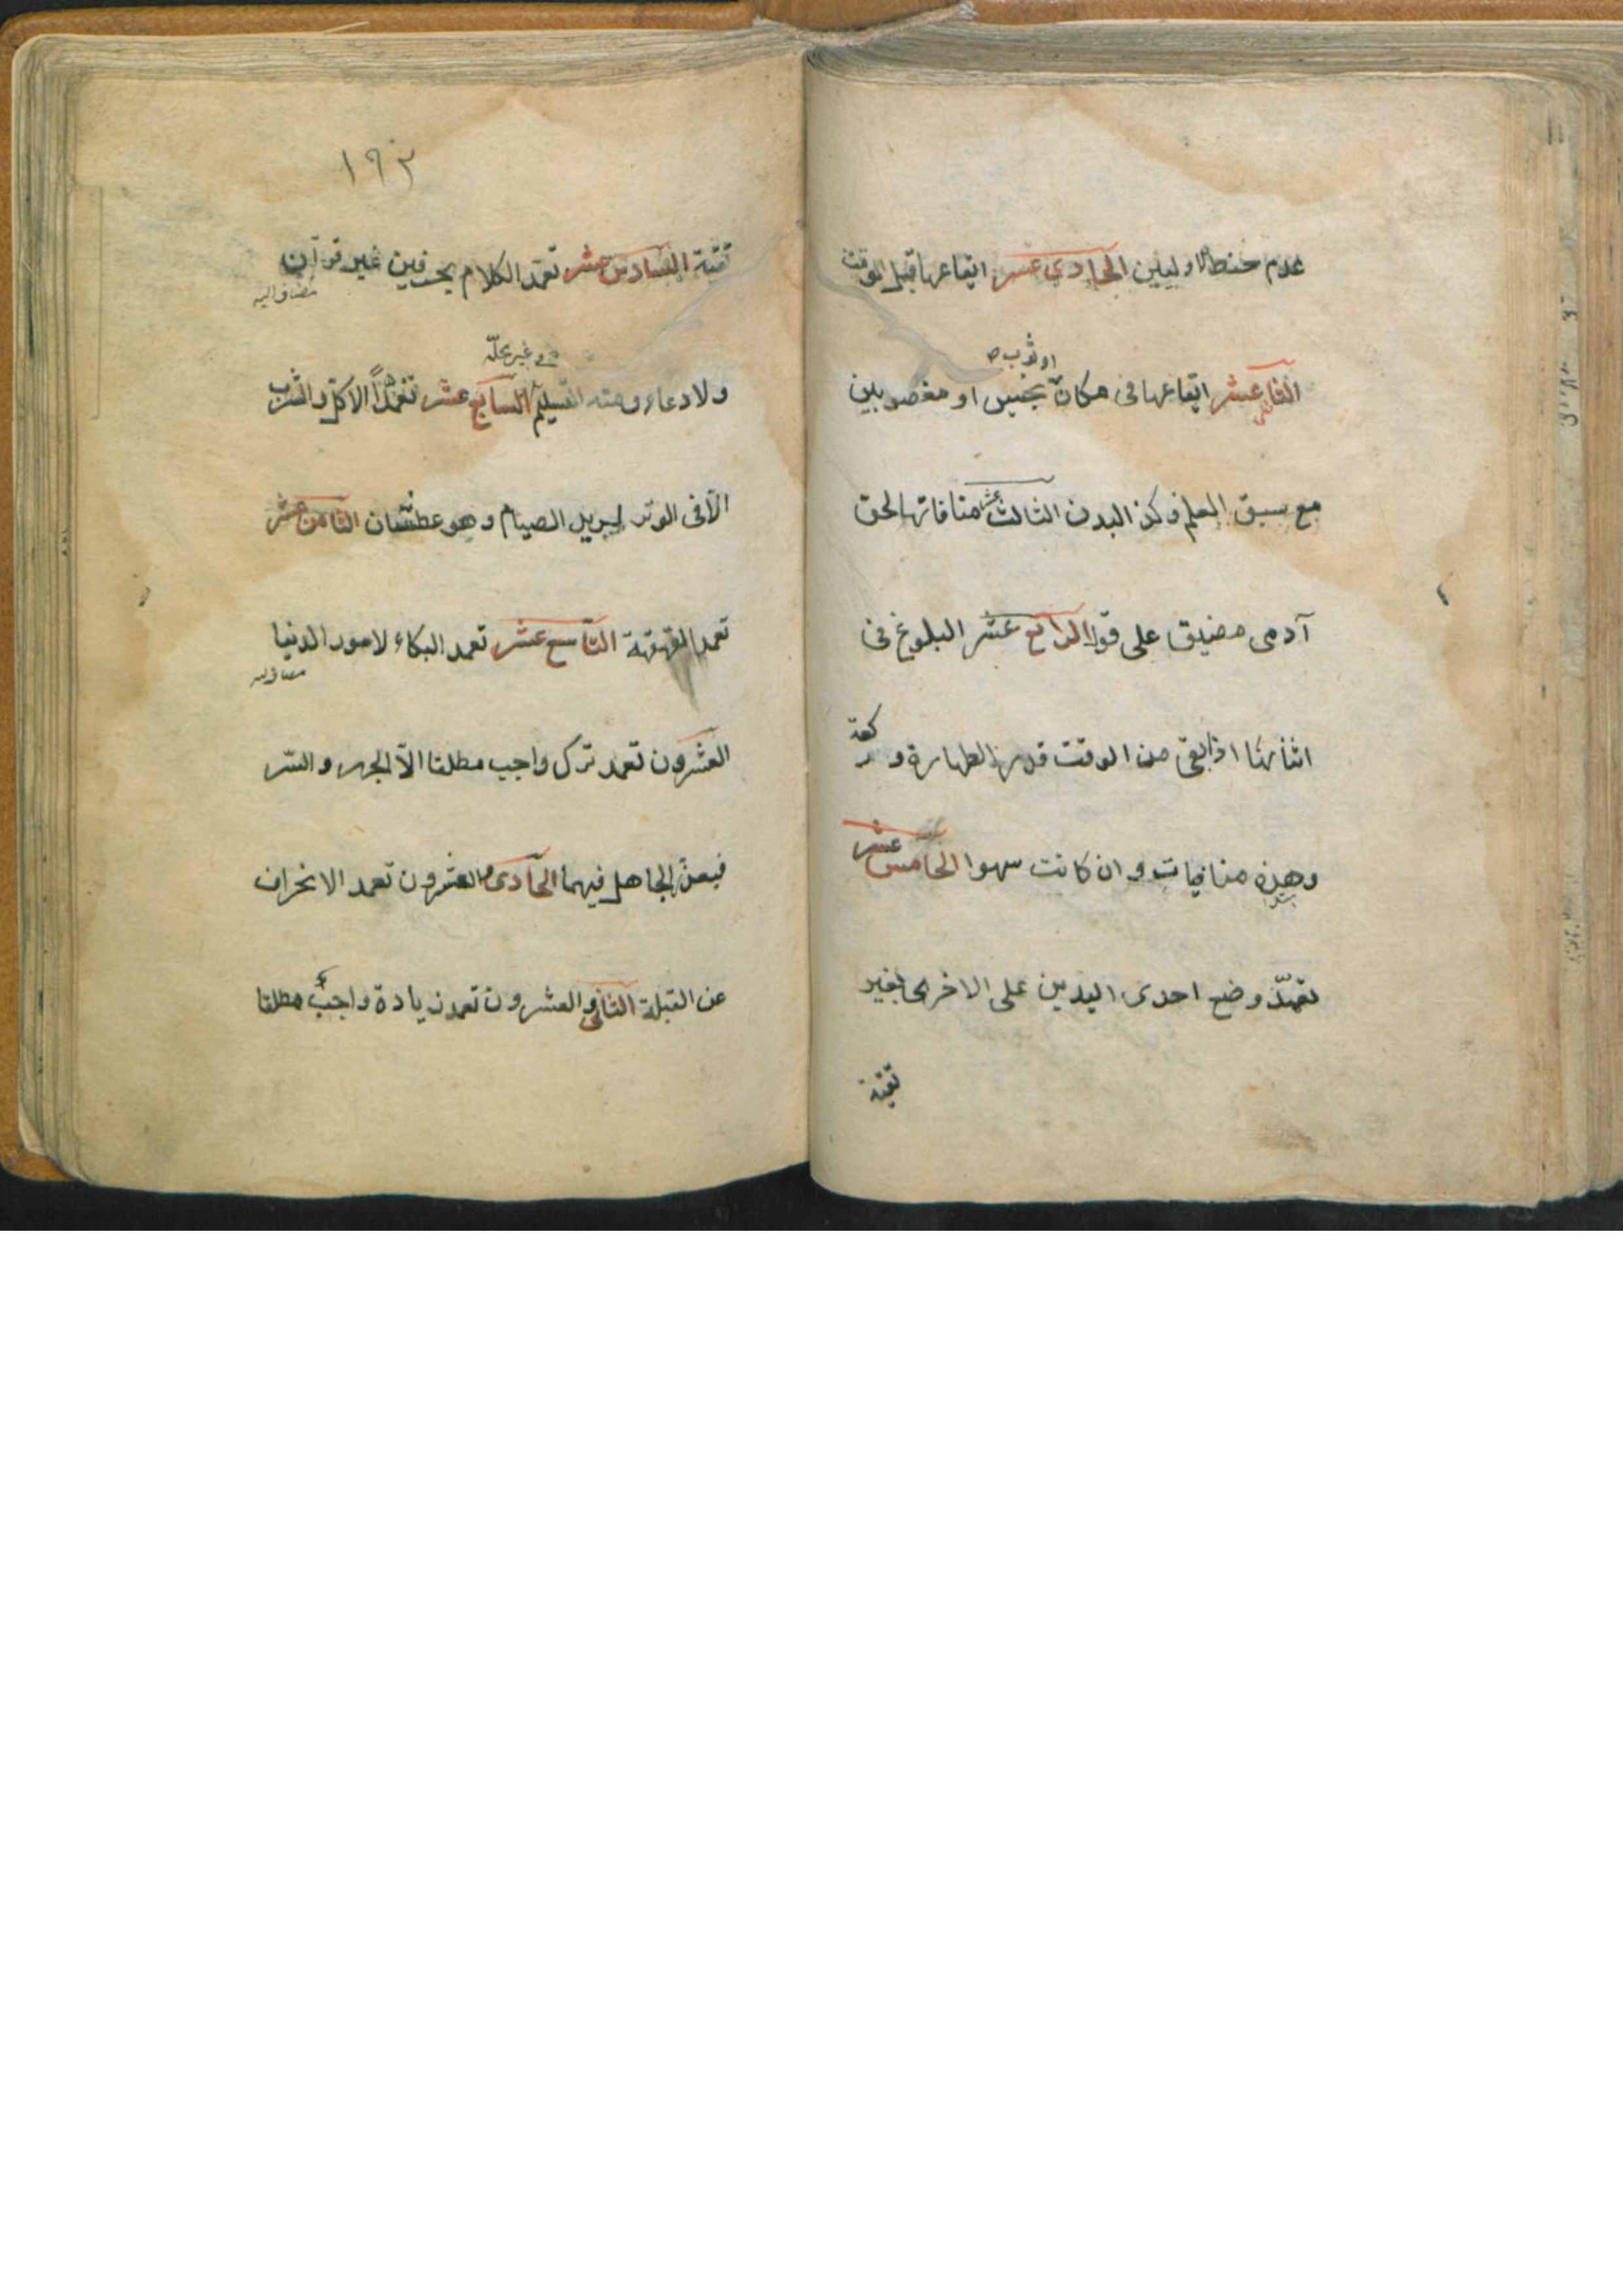 عدم حفظ الاوليين الحادي عشر ايقاعها قبل الوقت
او ثوب
الثاني عشر ايقاعها في مكان نجس او مغصوبين
مع سبق العلم وكذا البدن الثالث عشر منافاتها لحق
آدمي مضيق على قول الرابع عشر البلوغ في
اثنائها اذا بقى من الوقت قدر الطهارة و ركعة
وهذه منافيات وان كانت سهوا الخامس عشر
تعمّد وضع احدى اليدين على الاخرى لغير
تقيّة
١٩٢
تقيّة السادس عشر تعمّد الكلام بحرفين غير قرآن
مضاف اليه
في غير محلّه
ولا دعاء ومنه التسليم السابع عشر تعمّد الاكل والشرب
الّا في الوتر لمريد الصيام وهو عطشان الثامن عشر
تعمد القهقهة التاسع عشر تعمد البكاء لامور الدنيا
العشرون تعمد ترك واجب مطلقا الّا الجهر والسّر
فيعذر الجاهل فيهما الحادى والعشرون تعمد الانحراف
عن القبلة الثاني والعشرون تعمد زيادة واجب مطلقا